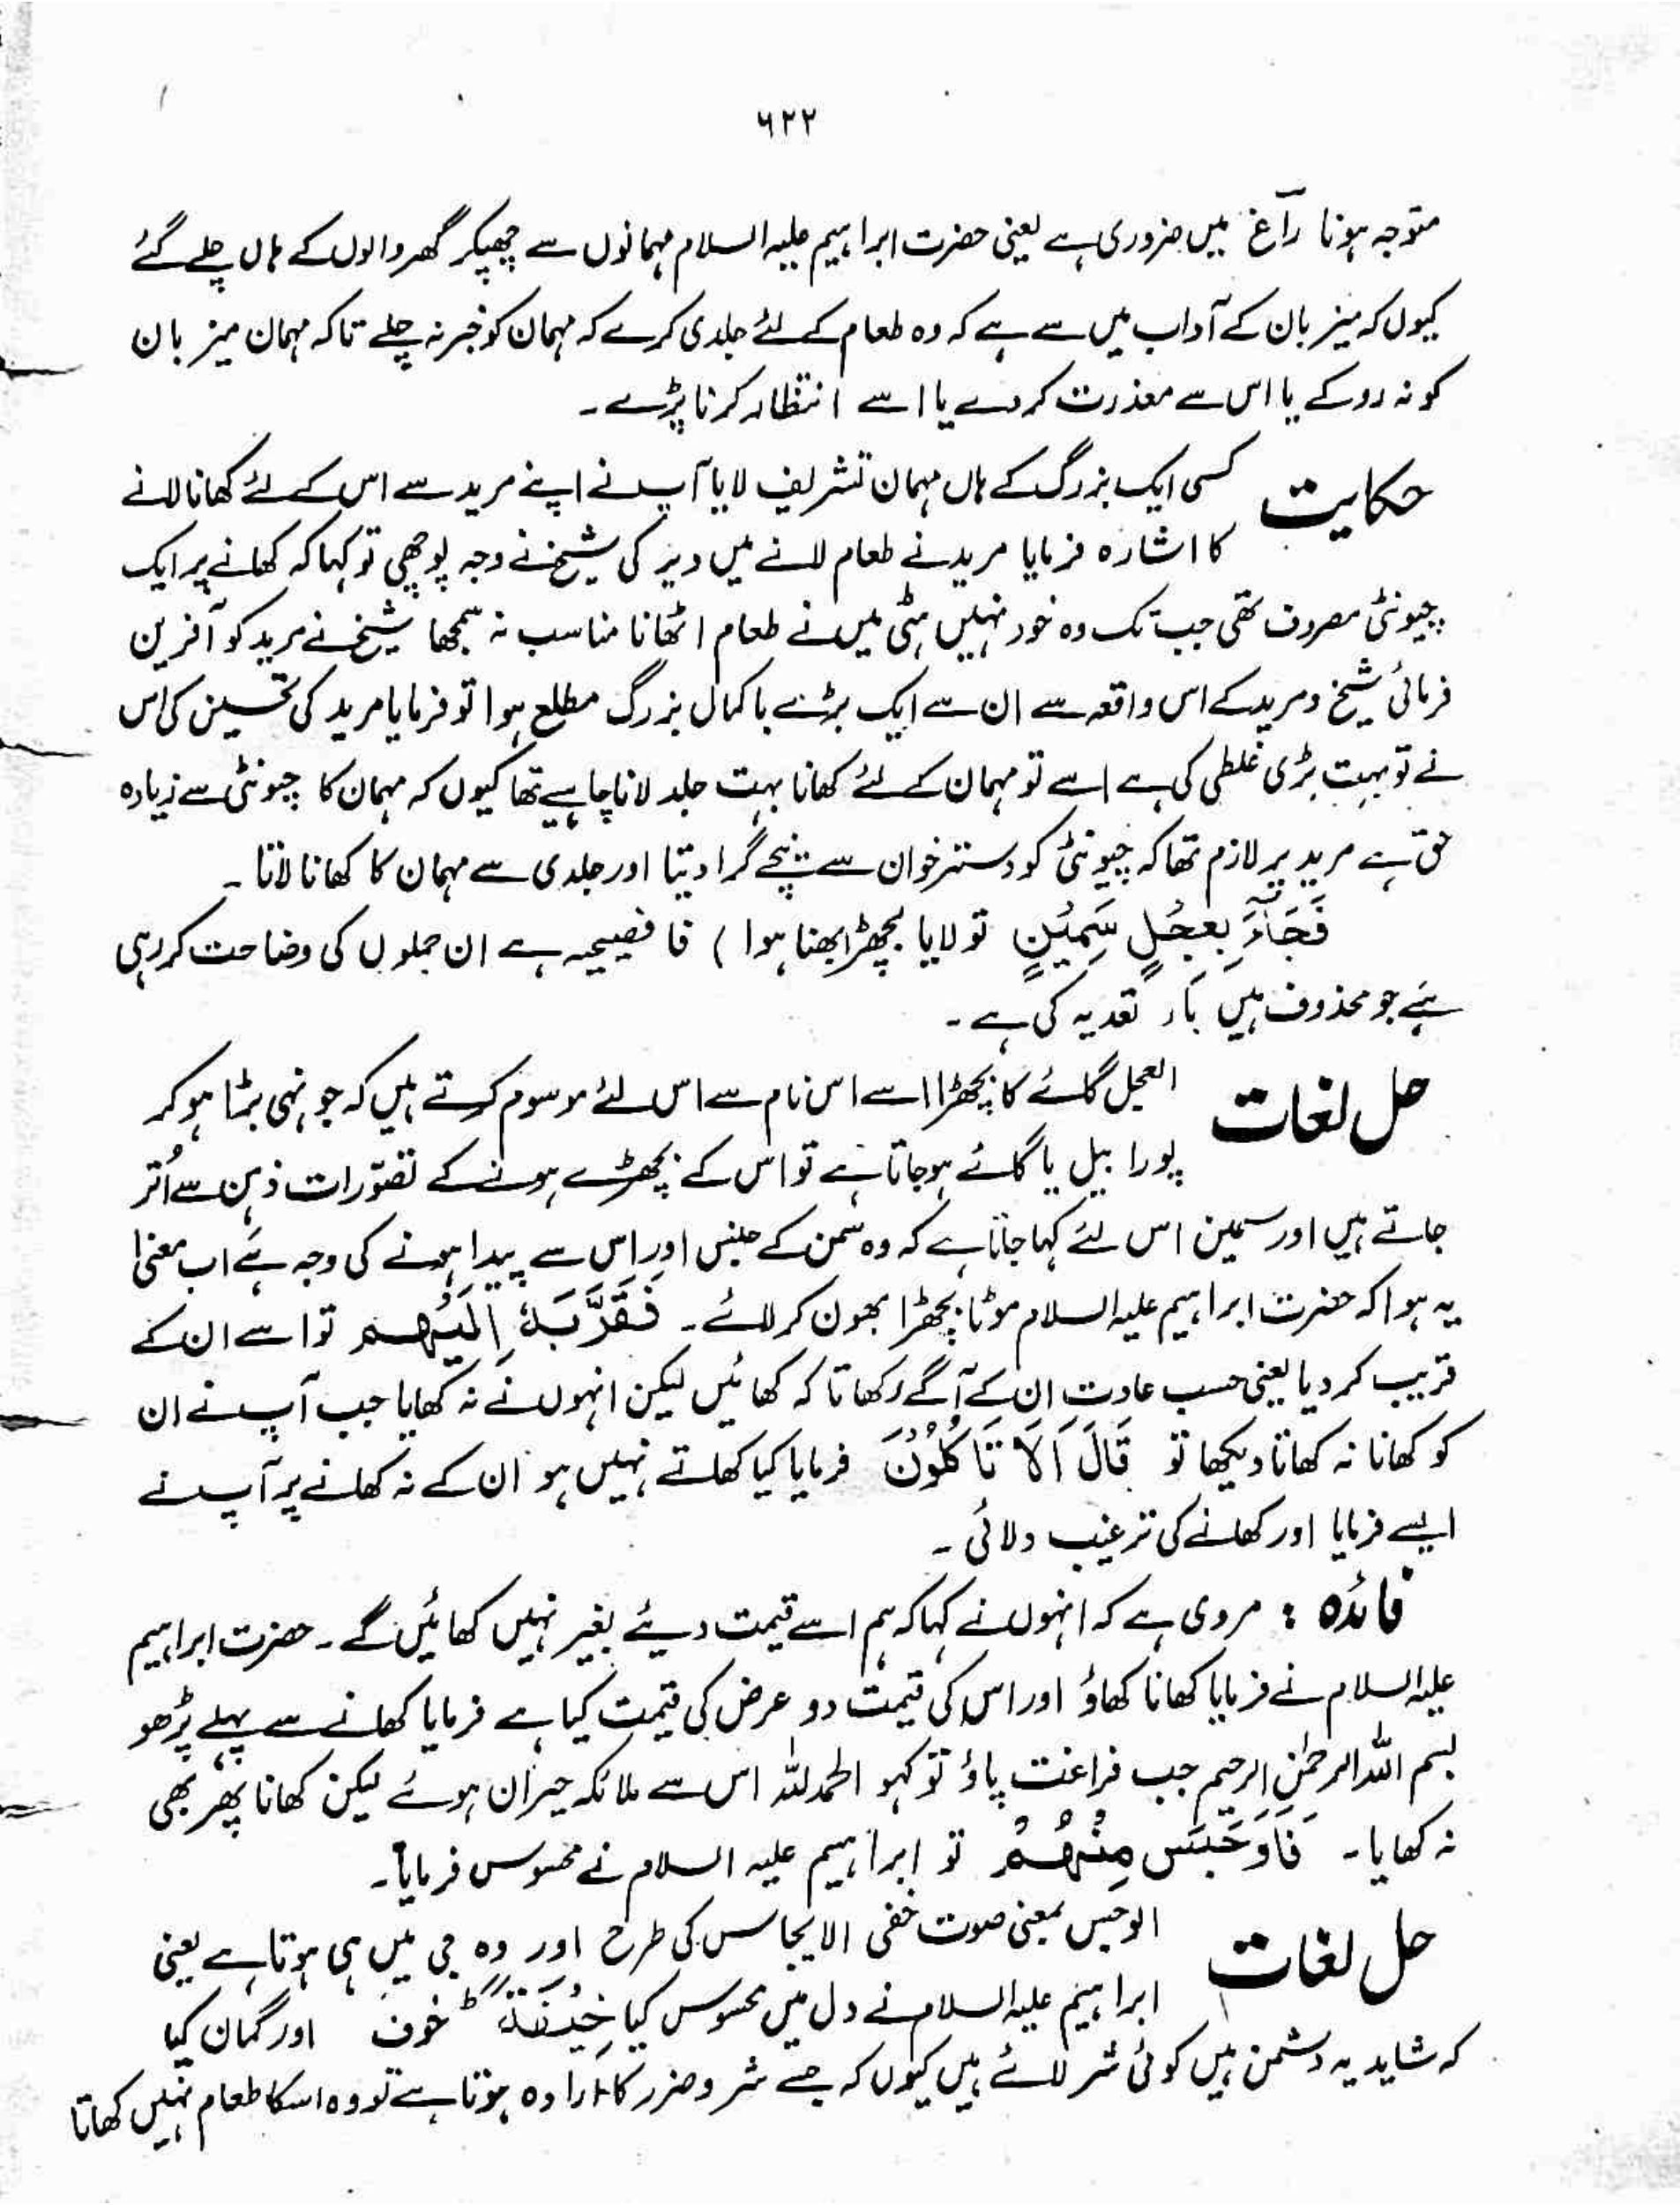 ۶۲۲
متوجہ ہونا راغ میں ضروری ہے یعنی حضرت ابراہیم علیہ السلام مہمانوں سے چھپکر گھر والوں کے ہاں چلے گئے
کیوں کہ میزبان کے آداب میں سے ہے کہ وہ طعام کے لئے جلدی کرے کہ مہمان کو خبر نہ چلے تاکہ مہمان میزبان
کو نہ روکے یا اس سے معذرت کر دے یا اسے انتظار کرنا پڑے ۔
حکایت کسی ایک بزرگ کے ہاں مہمان تشریف لایا آپ نے اپنے مرید سے اس کے لئے کھانا لانے
کا اشارہ فرمایا مرید نے طعام لانے میں دیر کی شیخ نے وجہ پوچھی تو کہا کہ کھانے پر ایک
چیونٹی مصروف تھی جب تک وہ خود نہیں ہٹی میں نے طعام اٹھانا مناسب نہ سمجھا شیخ نے مرید کو آفرین
فرمائی شیخ و مرید کے اس واقعہ سے ان سے ایک بڑے باکمال بزرگ مطلع ہوا تو فرمایا مرید کی تحسین کی اس
نے تو بہت بڑی غلطی کی ہے اسے تو مہمان کے لئے کھانا بہت جلد لانا چاہیے تھا کیوں کہ مہمان کا چیونٹی سے زیادہ
حق ہے مرید پر لازم تھا کہ چیونٹی کو دسترخوان سے نیچے گرا دیتا اور جلدی سے مہمان کا کھانا لاتا ۔
فَجَآءَ بِعِجْلٍ سَمِیْنٍ تو لایا بچھڑا بھنا ہوا ) فا فصیحیہ ہے ان جملوں کی وضاحت کر رہی
ہے جو محذوف ہیں باء تعدیہ کی ہے ۔
حل لغات العجل گائے کا بچھڑا اسے اس نام سے اس لئے موسوم کرتے ہیں کہ جونہی بڑا ہو کر
پورا بیل یا گائے ہو جاتا ہے تو اس کے بچھڑے ہونے کے تصوّرات ذہن سے اُتر
جاتے ہیں اور سمین اس لئے کہا جاتا ہے کہ وہ سمن کے جنس اور اس سے پیدا ہونے کی وجہ ہے اب معنیٰ
یہ ہوا کہ حضرت ابراہیم علیہ السلام موٹا بچھڑا بھون کر لائے ۔ فَقَرَّبَہٗ اِلَیْھِم تو اسے ان کے
قریب کر دیا یعنی حسب عادت ان کے آگے رکھا تا کہ کھائیں لیکن انہوں نے نہ کھایا جب آپ نے ان
کو کھانا نہ کھاتا دیکھا تو قَالَ اَلَا تَاکُلُوْنَ فرمایا کیا کھاتے نہیں ہو ان کے نہ کھانے پر آپ نے
ایسے فرمایا اور کھانے کی ترغیب دلائی ۔
فائدہ : مروی ہے کہ انہوں نے کہا کہ ہم اسے قیمت دیئے بغیر نہیں کھائیں گے ۔ حضرت ابراہیم
علیہ السلام نے فرمایا کھانا کھاؤ اور اس کی قیمت دو عرض کی قیمت کیا ہے فرمایا کھانے سے پہلے پڑھو
بسم اللہ الرحمٰن الرحیم جب فراغت پاؤ تو کہو الحمدللہ اس سے ملائکہ حیران ہوئے لیکن کھانا پھر بھی
نہ کھایا ۔ فَاَوْجَسَ مِنْھُمْ تو ابراہیم علیہ السلام نے محسوس فرمایا ۔
حل لغات الوجس بمعنی صوت خفی الایجاس کی طرح اور وہ جی میں ہی ہوتا ہے یعنی
ابراہیم علیہ السلام نے دل میں محسوس کیا خِیْفَۃً ط خوف اور گمان کیا
کہ شاید یہ دشمن ہیں کوئی شر لائے ہیں کیوں کہ جسے شر و ضرر کا ارادہ ہوتا ہے تو وہ اسکا طعام نہیں کھاتا